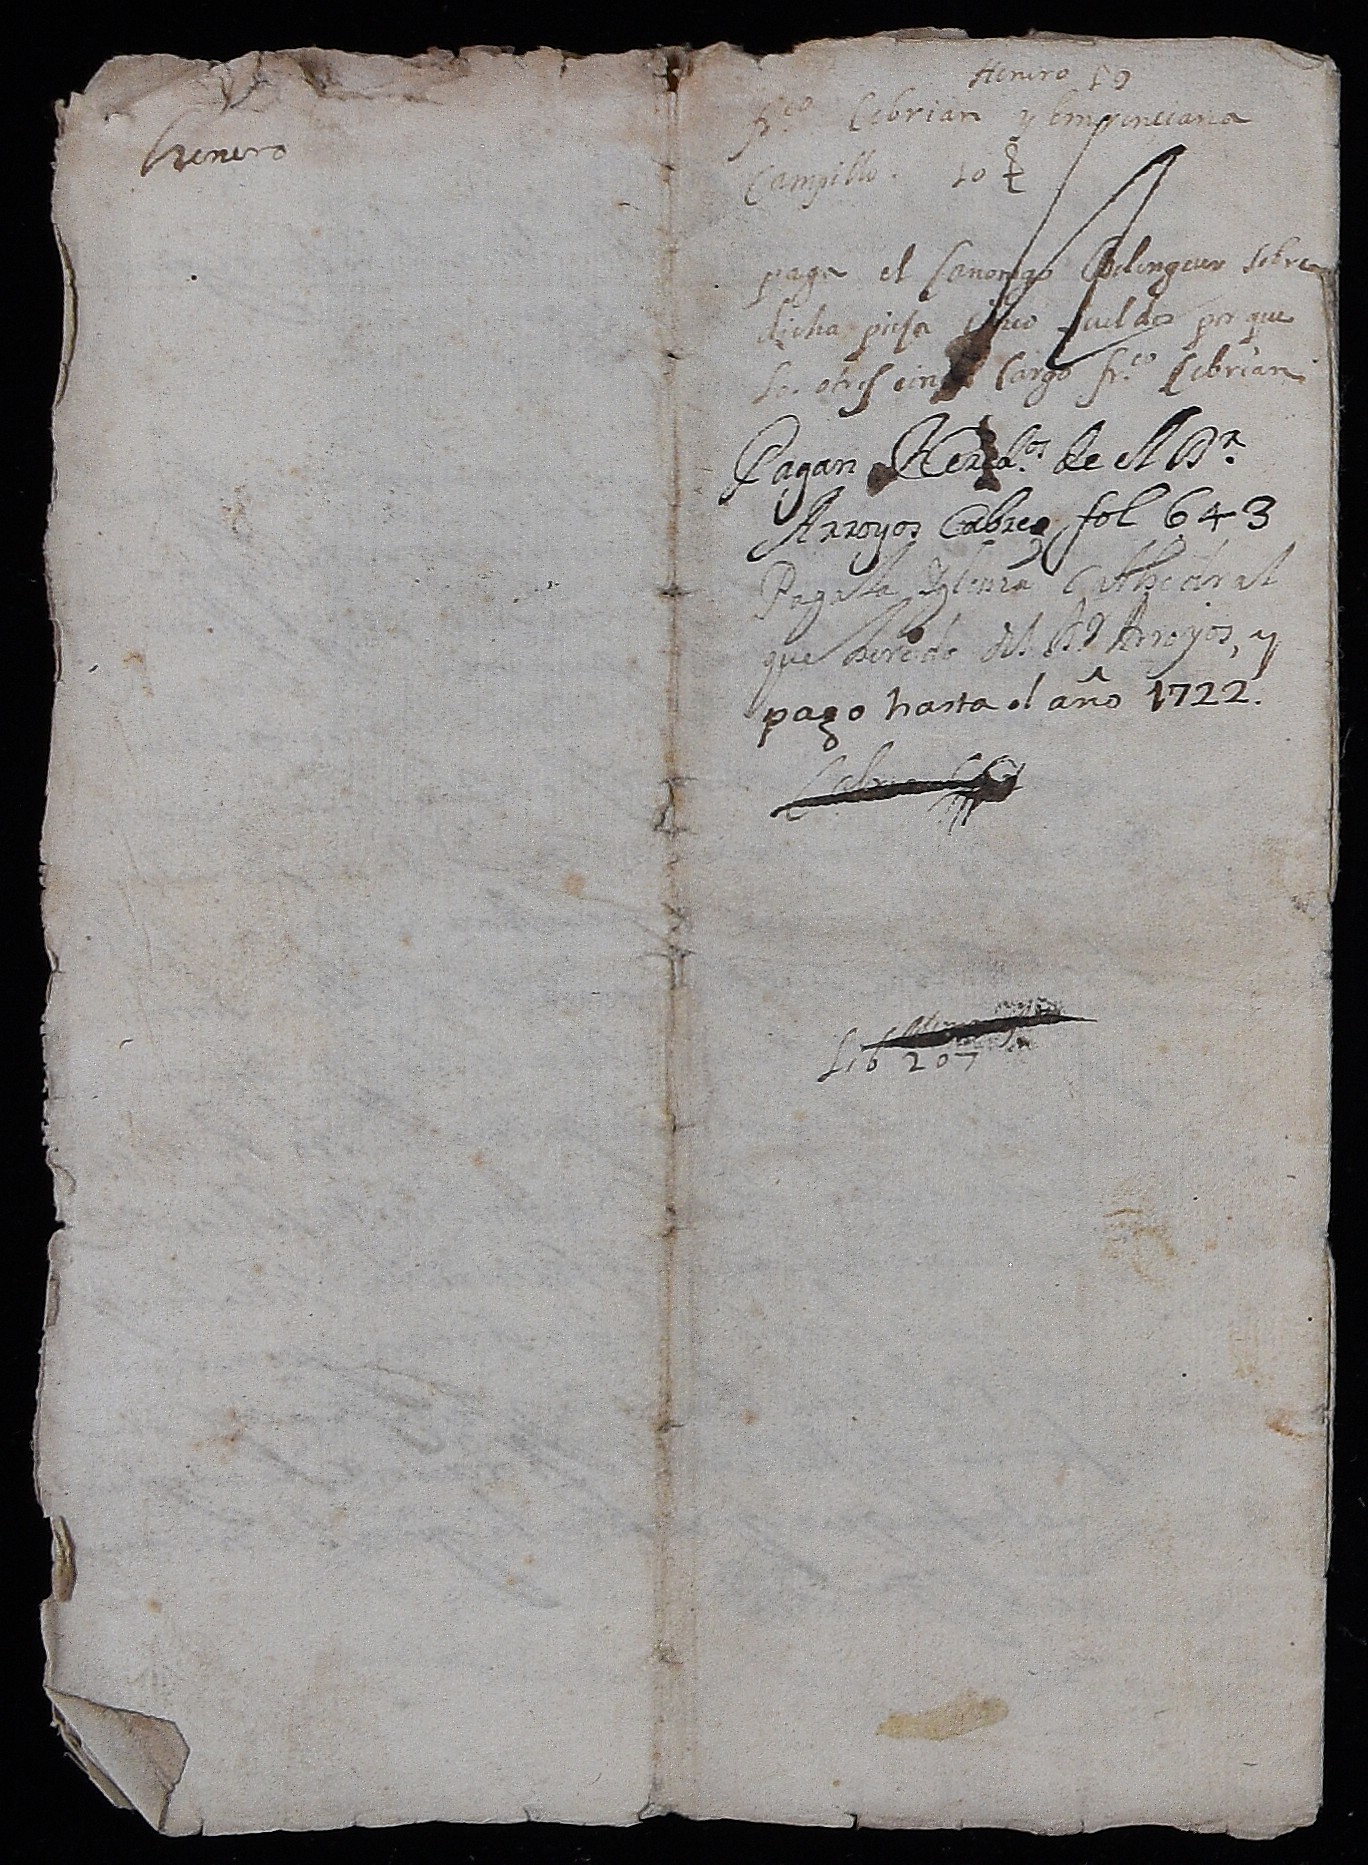 Henero
Henero 19
fr.co Cebrian y Emerenciana
Campillo. 10
paga el Canonigo Belenguer sobre
dicha piesa cinco sueldos por que
los otros cinco cargo fr.co Cebrian
Pagan Hered.os de el D.r
Arroyos Cabreo fol 643
Paga la Iglesia Cathedral
que heredo del D.r Arroyos, y
pago hasta el año 1722.
Lib 207